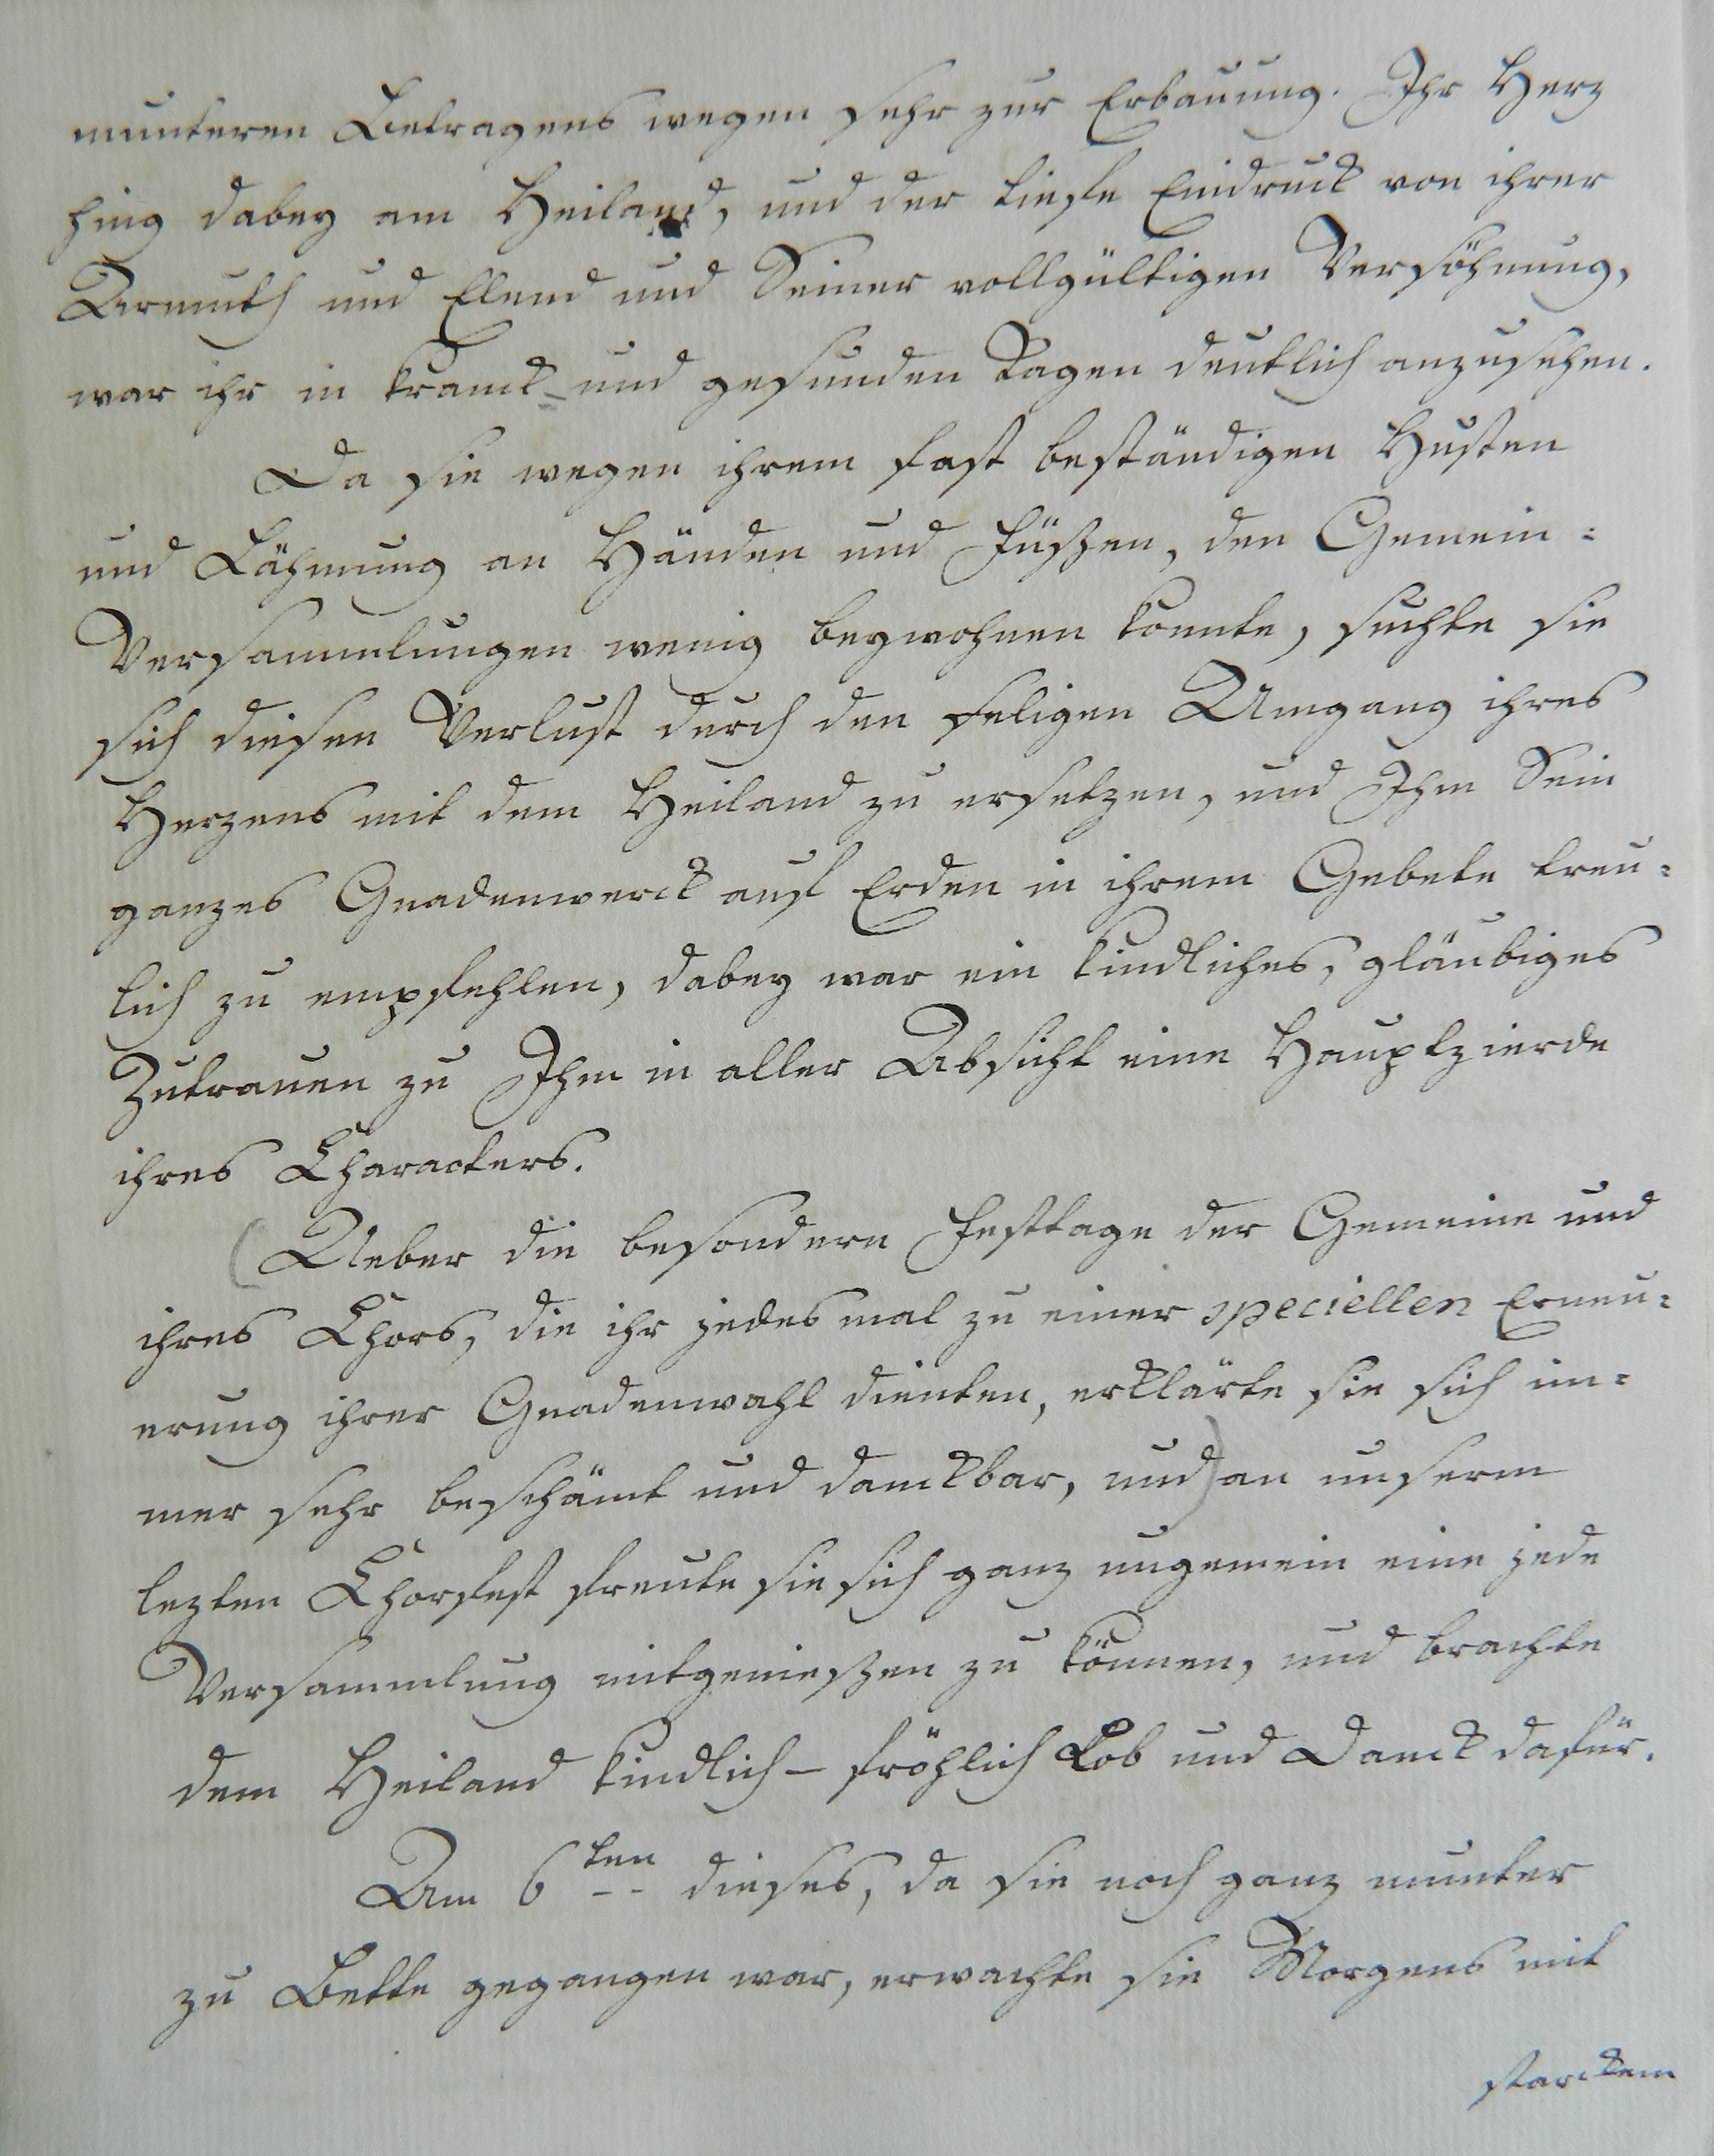 munteren Betragens wegen sehr zur Erbauung. Ihr Herz
hing dabey am Heiland, und der tiefe Eindruck von ihrer
Armuth und Elend und Seiner vollgültigen Versöhnung,
war ihr in kranck- und gesunden Tagen deutlich anzusehen.
Da sie wegen ihrem fast beständigen Husten
und Lähmung an Händen und Füßen, den Gemein=
Versammlungen wenig beywohnen konnte, suchte sie
sich diesen Verlust durch den seligen Umgang ihres
Herzens mit dem Heiland zu ersetzen, und Ihm Sein
ganzes Gnadenwerck auf Erden in ihrem Gebete treu=
lich zu empfehlen, dabey war ein kindliches, gläubiges
Zutrauen zu Ihm in aller Absicht eine Hauptzierde
ihres Characters.
(Ueber die besondern Festtage der Gemeine und
ihres Chors, die ihr jedesmal zu einer speciellen Erneu=
erung ihrer Gnadenwahl dienten, erklärte sie sich im=
mer sehr beschämt und danckbar, und) an unserm
lezten Chorfest freute sie sich ganz ungemein eine jede
Versammlung mitgenießen zu können, und brachte
dem Heiland kindlich- fröhlich Lob und Danck dafür.
Am 6ten dieses, da sie noch ganz munter
zu Bette gegangen war, erwachte sie Morgens mit
starckem